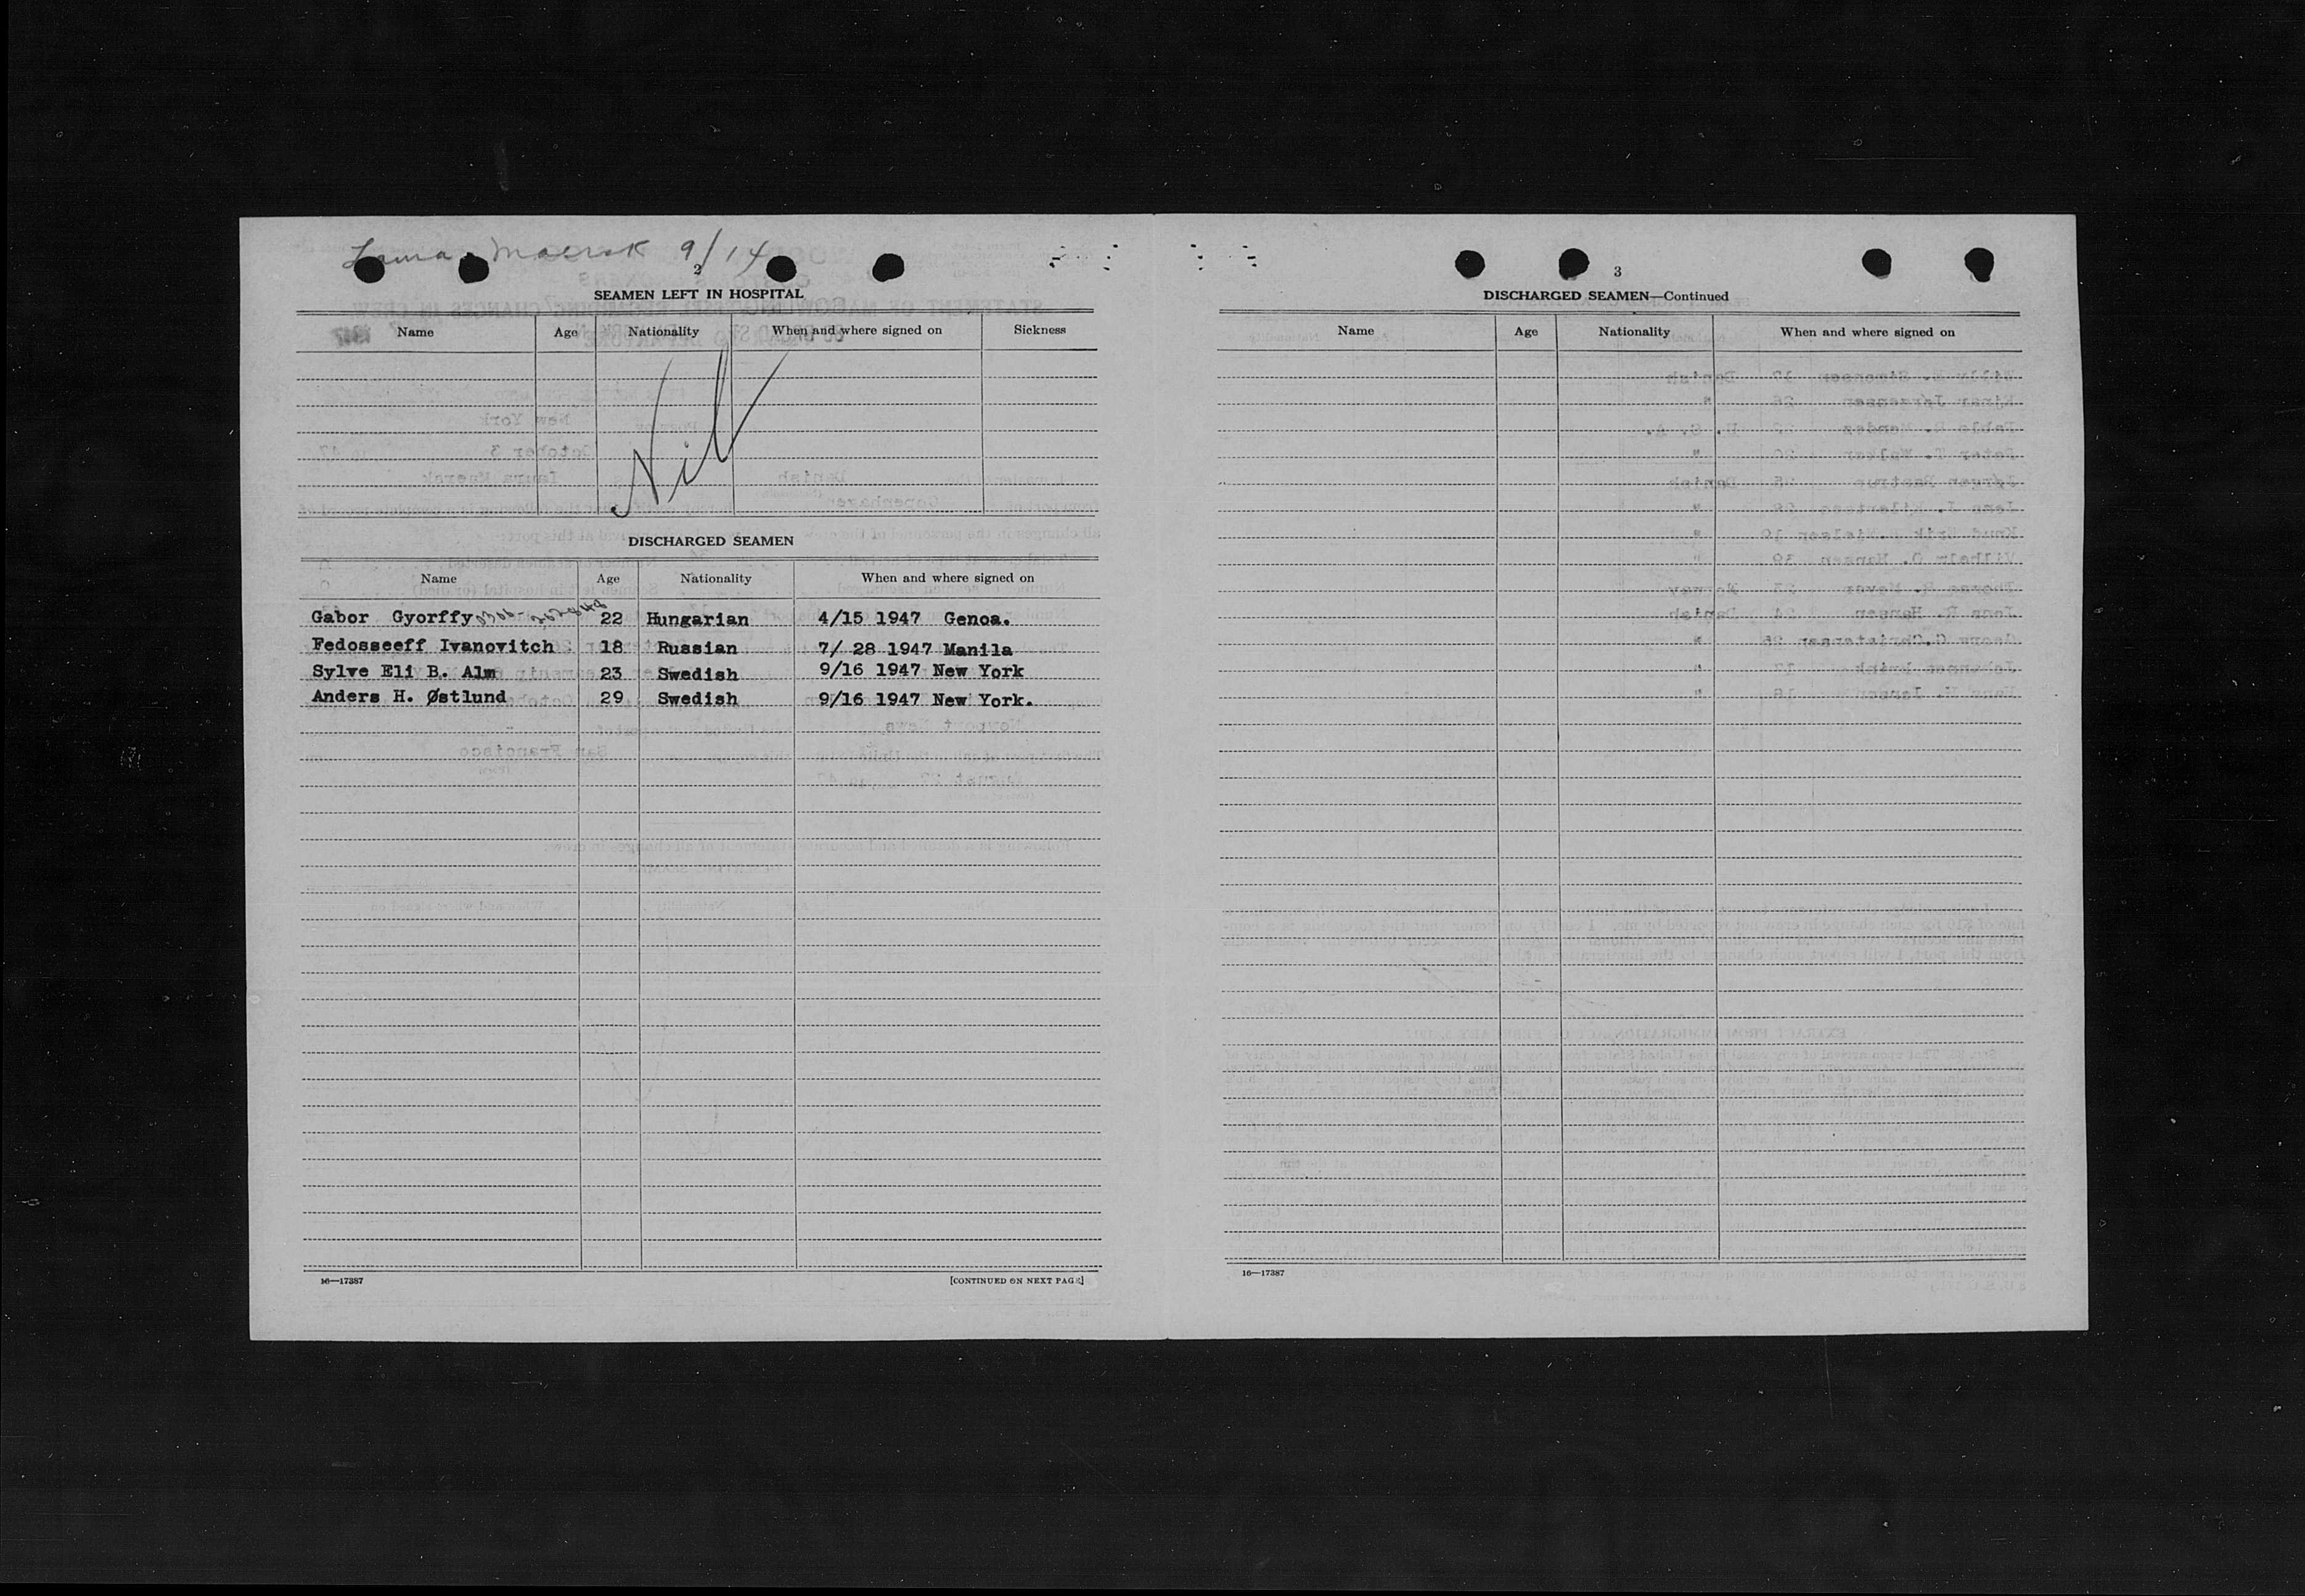 Laura Maersk 9/14
2
SEAMEN LEFT IN HOSPITAL
Name Age Nationality When and where signed on Sickness
Nil
DISCHARGED SEAMEN
Name Age Nationality When and where signed on
Gabor Gyorffy 22 Hungarian 4/15 1947 Genoa.
Fedosseeff Ivanovitch 18 Russian 7/ 28 1947 Manila
Sylve Eli B. Alm 23 Swedish 9/16 1947 New York
Anders H. Østlund 29 Swedish 9/16 1947 New York.
16—17387 [CONTINUED ON NEXT PAGE]
3
DISCHARGED SEAMEN—Continued
Name Age Nationality When and where signed on
16—17387